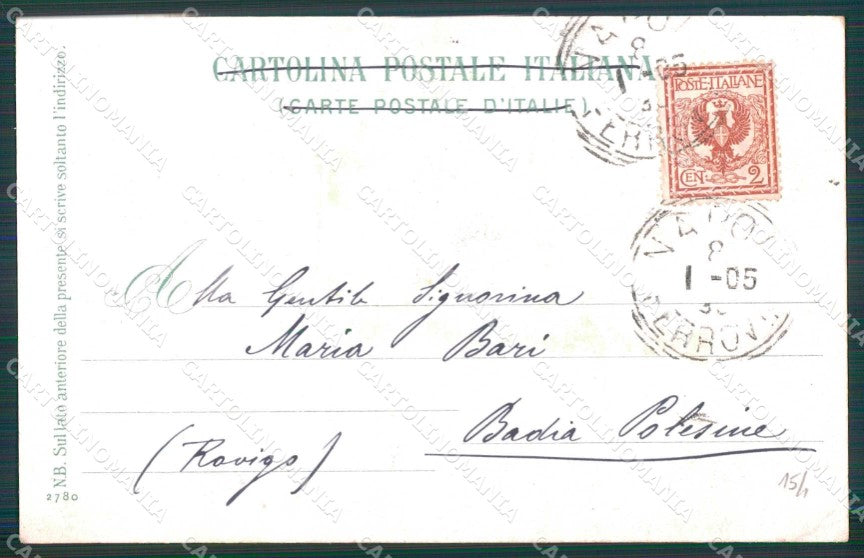 CARTOLINA POSTALE ITALIANA
(CARTE POSTALE D'ITALIE)
POSTE·ITALIANE
CEN: 2
8
1-05
FERROV
Alla Gentile Signorina
Maria Bari
Badia Polesine
(Rovigo)
N.B. Sul lato anteriore della presente si scrive soltanto l'indirizzo.
2780
15/1
CARTOLINOMANIA